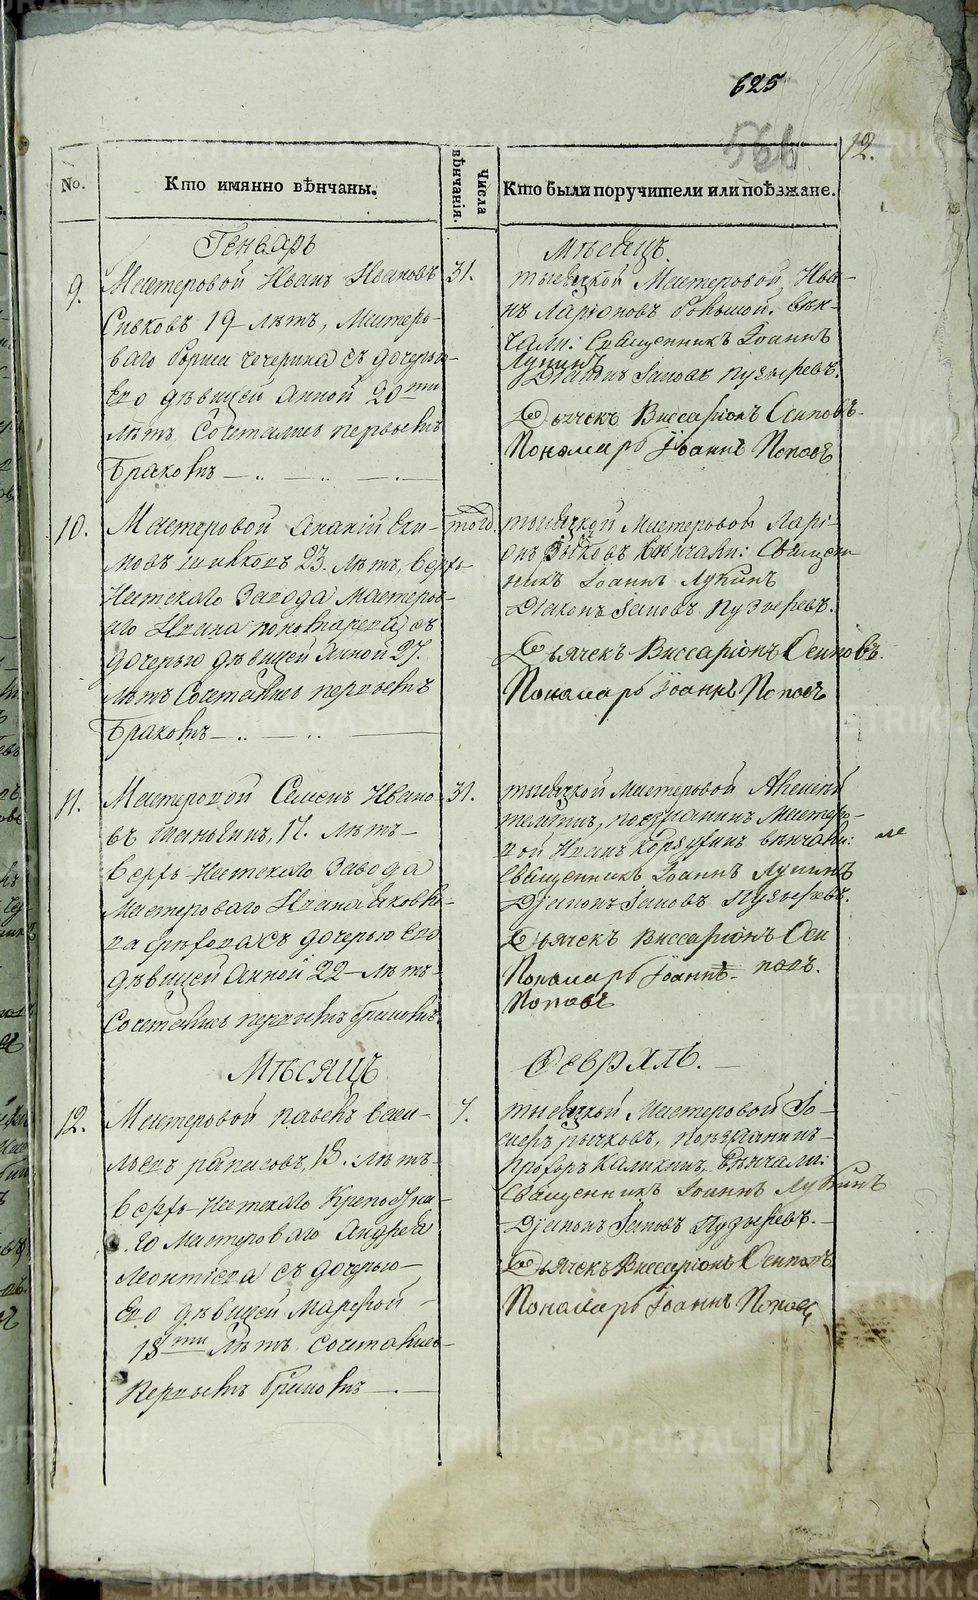 625
566
12.
No.
Кто имянно вѣнчаны.
Числа вѣнчанія.
Кто были поручители или поѣзжане.
Генварь
Мѣсяцъ.
9.
Мастеровой Иванъ Ивановъ
Сивковъ 19 лѣтъ, Мастеро-
ваго Бориса Чечерина съ дочерью
Его дѣвицей Анной 20ти
лѣтъ Сочетались первымъ
Бракомъ
31.
тысяцкой Мастеровой Ива-
нъ Ларіоновъ Вѣн-
чали: Священникъ Іоаннъ
Лукинъ
Діаконъ Іаковъ Пузыревъ.
Дьячекъ Виссаріонъ Осиповъ.
Пономарь Іоаннъ Поповъ
10.
Мастеровой Ананій Еки-
мовъ 23. лѣтъ, Верхъ-
Нейскаго Завода Мастеров-
аго Ивана съ
дочерью дѣвицей Анной 27.
лѣтъ Сочетались первымъ
Бракомъ
тогд.
тысяцкой Мастеровой Ларі-
онъ Вѣнчали: Священ
никъ Іоаннъ Лукинъ
Діаконъ Іаковъ Пузыревъ.
Дьячекъ Виссаріонъ Осиповъ.
Пономарь Іоаннъ Поповъ
11.
Мастеровой Семенъ Ивано
въ Шаньгинъ, 17. лѣтъ
Верхъ-Нейскаго Завода
Мастероваго Ивана
съ дочерью Его
дѣвицей Анной 22 лѣтъ
Сочетались первымъ бракомъ.
31.
тысяцкой Мастеровой Алексѣй
поѣзжанинъ Мастеро-
вой Иванъ Корзухинъ вѣнчали:
Священникъ Іоаннъ Лукинъ
Діаконъ Іаковъ Пузыревъ.
Дьячекъ Виссаріонъ Оси
повъ.
Пономарь Іоаннъ
Поповъ
Мѣсяцъ
Февраль.
12.
Мастеровой Павелъ Васи-
льевъ 18. лѣтъ
Верхъ-Нейскаго
го Мастероваго Андрея
Леонтіева съ дочерью
Его дѣвицей Марѳой
18ти лѣтъ сочетались
Первымъ бракомъ
7.
тысяцкой Мастеровой Іо-
сифъ Пычковъ, поѣзжанинъ
Прохоръ Калинин, Вѣнчали:
Священникъ Іоаннъ Лукинъ
Діаконъ Іаковъ Пузыревъ.
Дьячекъ Виссаріонъ Осиповъ
Пономарь Іоаннъ Поповъ
METRIKI.GASO-URAL.RU